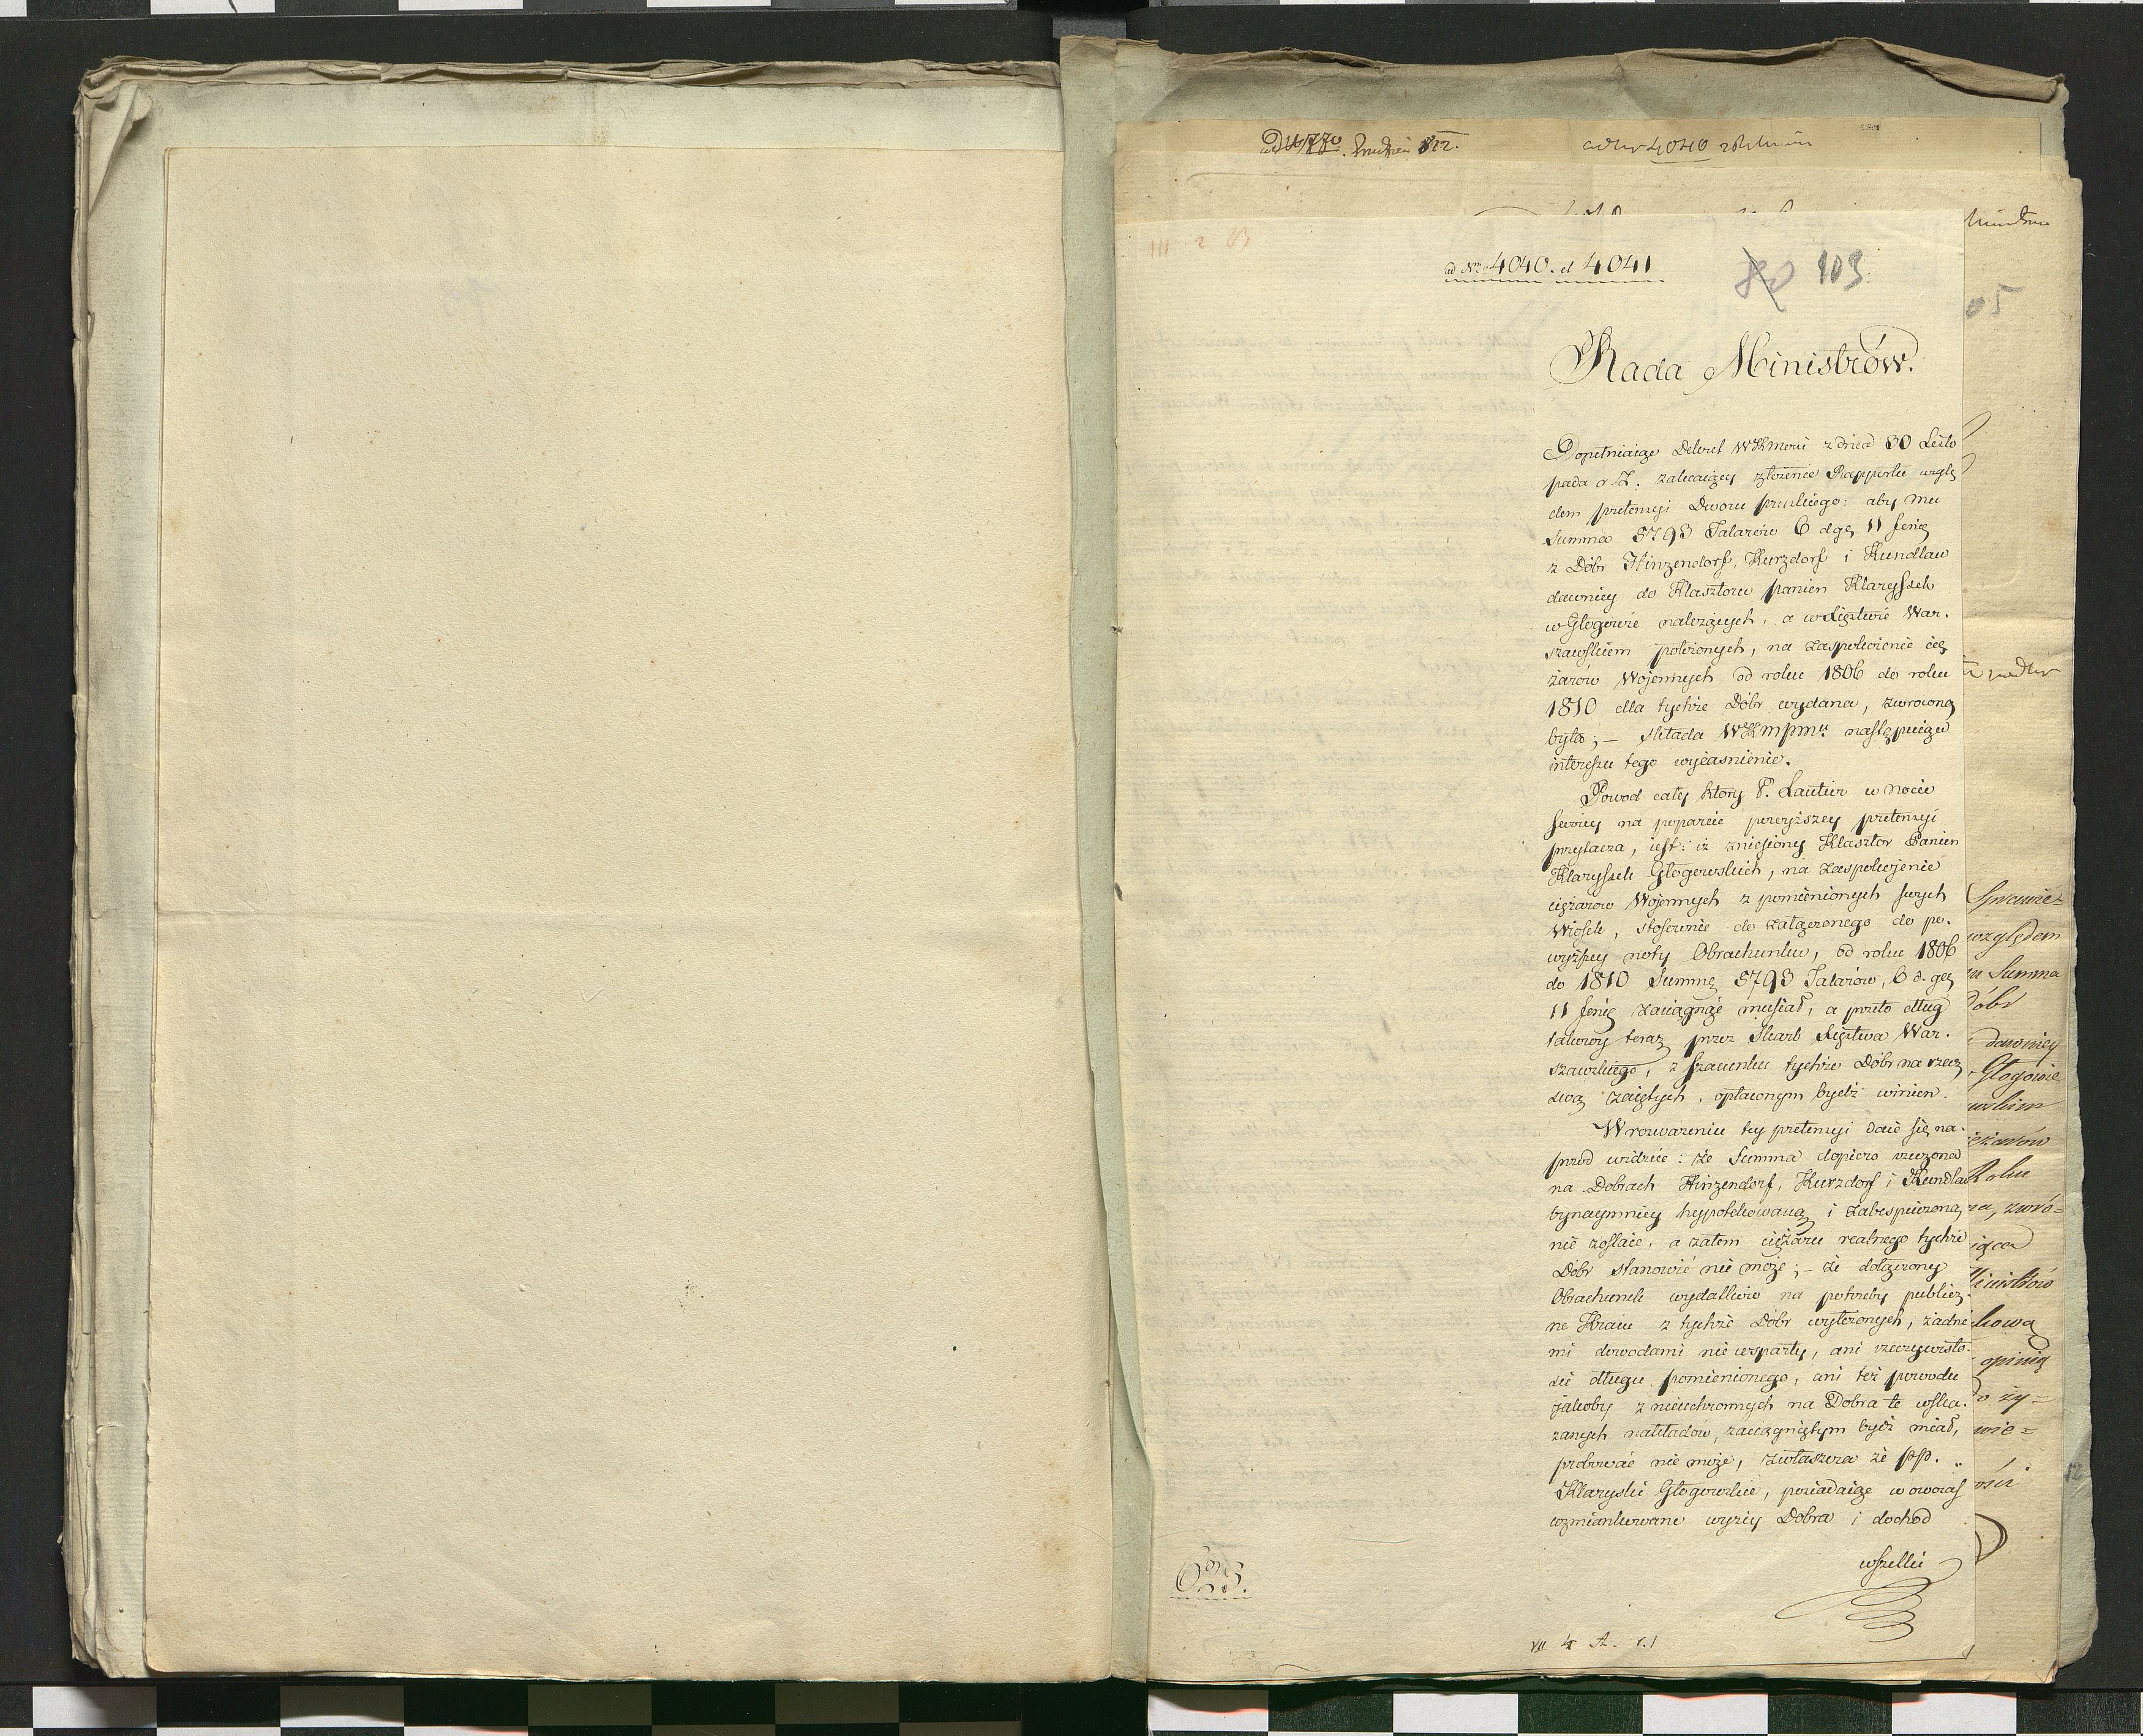 ad Nr 4040 et 4041
103
Rada Ministrów.
Dopełniaiąc Dekret WKMości z dnia 30 Listo
pada r. z. zalecaiący złożenie Rapportu wzglę
dem pretensyi Dworu pruskiego: aby mu
Summa 5793 Talarów 6 dgr 11 fenig
z Dóbr Hinzendorf, Kurzdorf i Kundlau
dawniey do Klasztoru panien Klaryssek
w Głogowie należących, a w Xięztwie War.
szawskiem położonych, na zaspokoienie cię
żarów Wojennych od roku 1806 do roku
1810 dla tychże Dóbr wydana, zwroconą
była; – składa WKMPmu nastepuiące
interessu tego wyiasnienie.
Powod cały ktory P. Lautier w nocie
swoiey na poparcie powyższey pretensyi
przytacza, iest: iż zniesiony Klasztor Panien
Klaryssek Głogowskich, na zaspokojenie
ciężarow Wojennych z pomienionych swych
Wiosek, stosownie do załączonego do po.
wyższey noty Obrachunku, od roku 1806
do 1810 Summę 5793 Talarów, 6 d. gr
11 fenig zaciągnąć musiał, a przeto dług
takowy teraz przez Skarb Xięztwa War.
szawskiego, z szacunku tychże Dóbr na rzecz
swą zaiętych, opłaconym bydź winien.
W rozwazeniu tey pretensyi daie się na.
przod widziec: że Summa dopiero rzeczona
na Dobrach Hinzendorf, Kurzdorf i Kundlau
bynaymniey hypotekowaną i zabespieczoną
nie zostaie, a zatem ciężaru realnego tychże
Dóbr stanowić nie może; – że dołączony
Obrachunek wydatków na potrzeby publicz.
ne Kraiu z tychże Dóbr wyłożonych, żadne
mi dowodami nie wsparty, ani rzeczywisto.
sci długu pomienionego, ani też powodu
jakoby z nieuchronnych na Dobra te wska.
zanych nakładów, zaciągniętym bydź miał,
probować nie może, zwłaszcza że pp.
Klaryski Głogowskie, posiadaiąc w owczas
wzmiankowane wyżey Dobra i dochod
wszelki
VII 4 A. r. 1
ad Nr 4040
względem
Summa
Dóbr
dawniey
Głogowie
Roku
zwró=
opinią